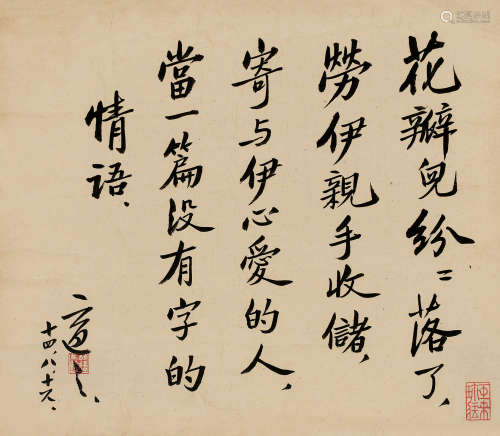 花瓣兒紛〻落了、
勞伊親手收儲、
寄与伊心愛的人、
當一篇没有字的
情语、
適之、
十四、八、十九、